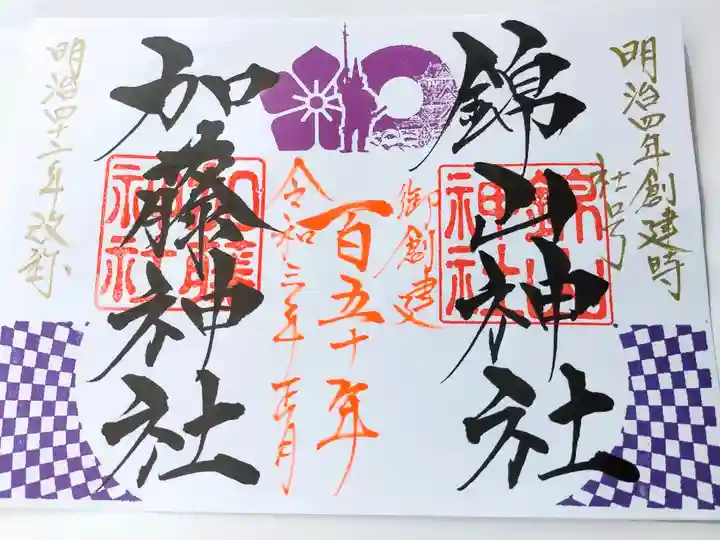 明治四年創建時
社号
錦山神社
錦山
神社
御創建
百五十年
令和三年 正月
加藤神社
加藤
神社
明治四十二年改称